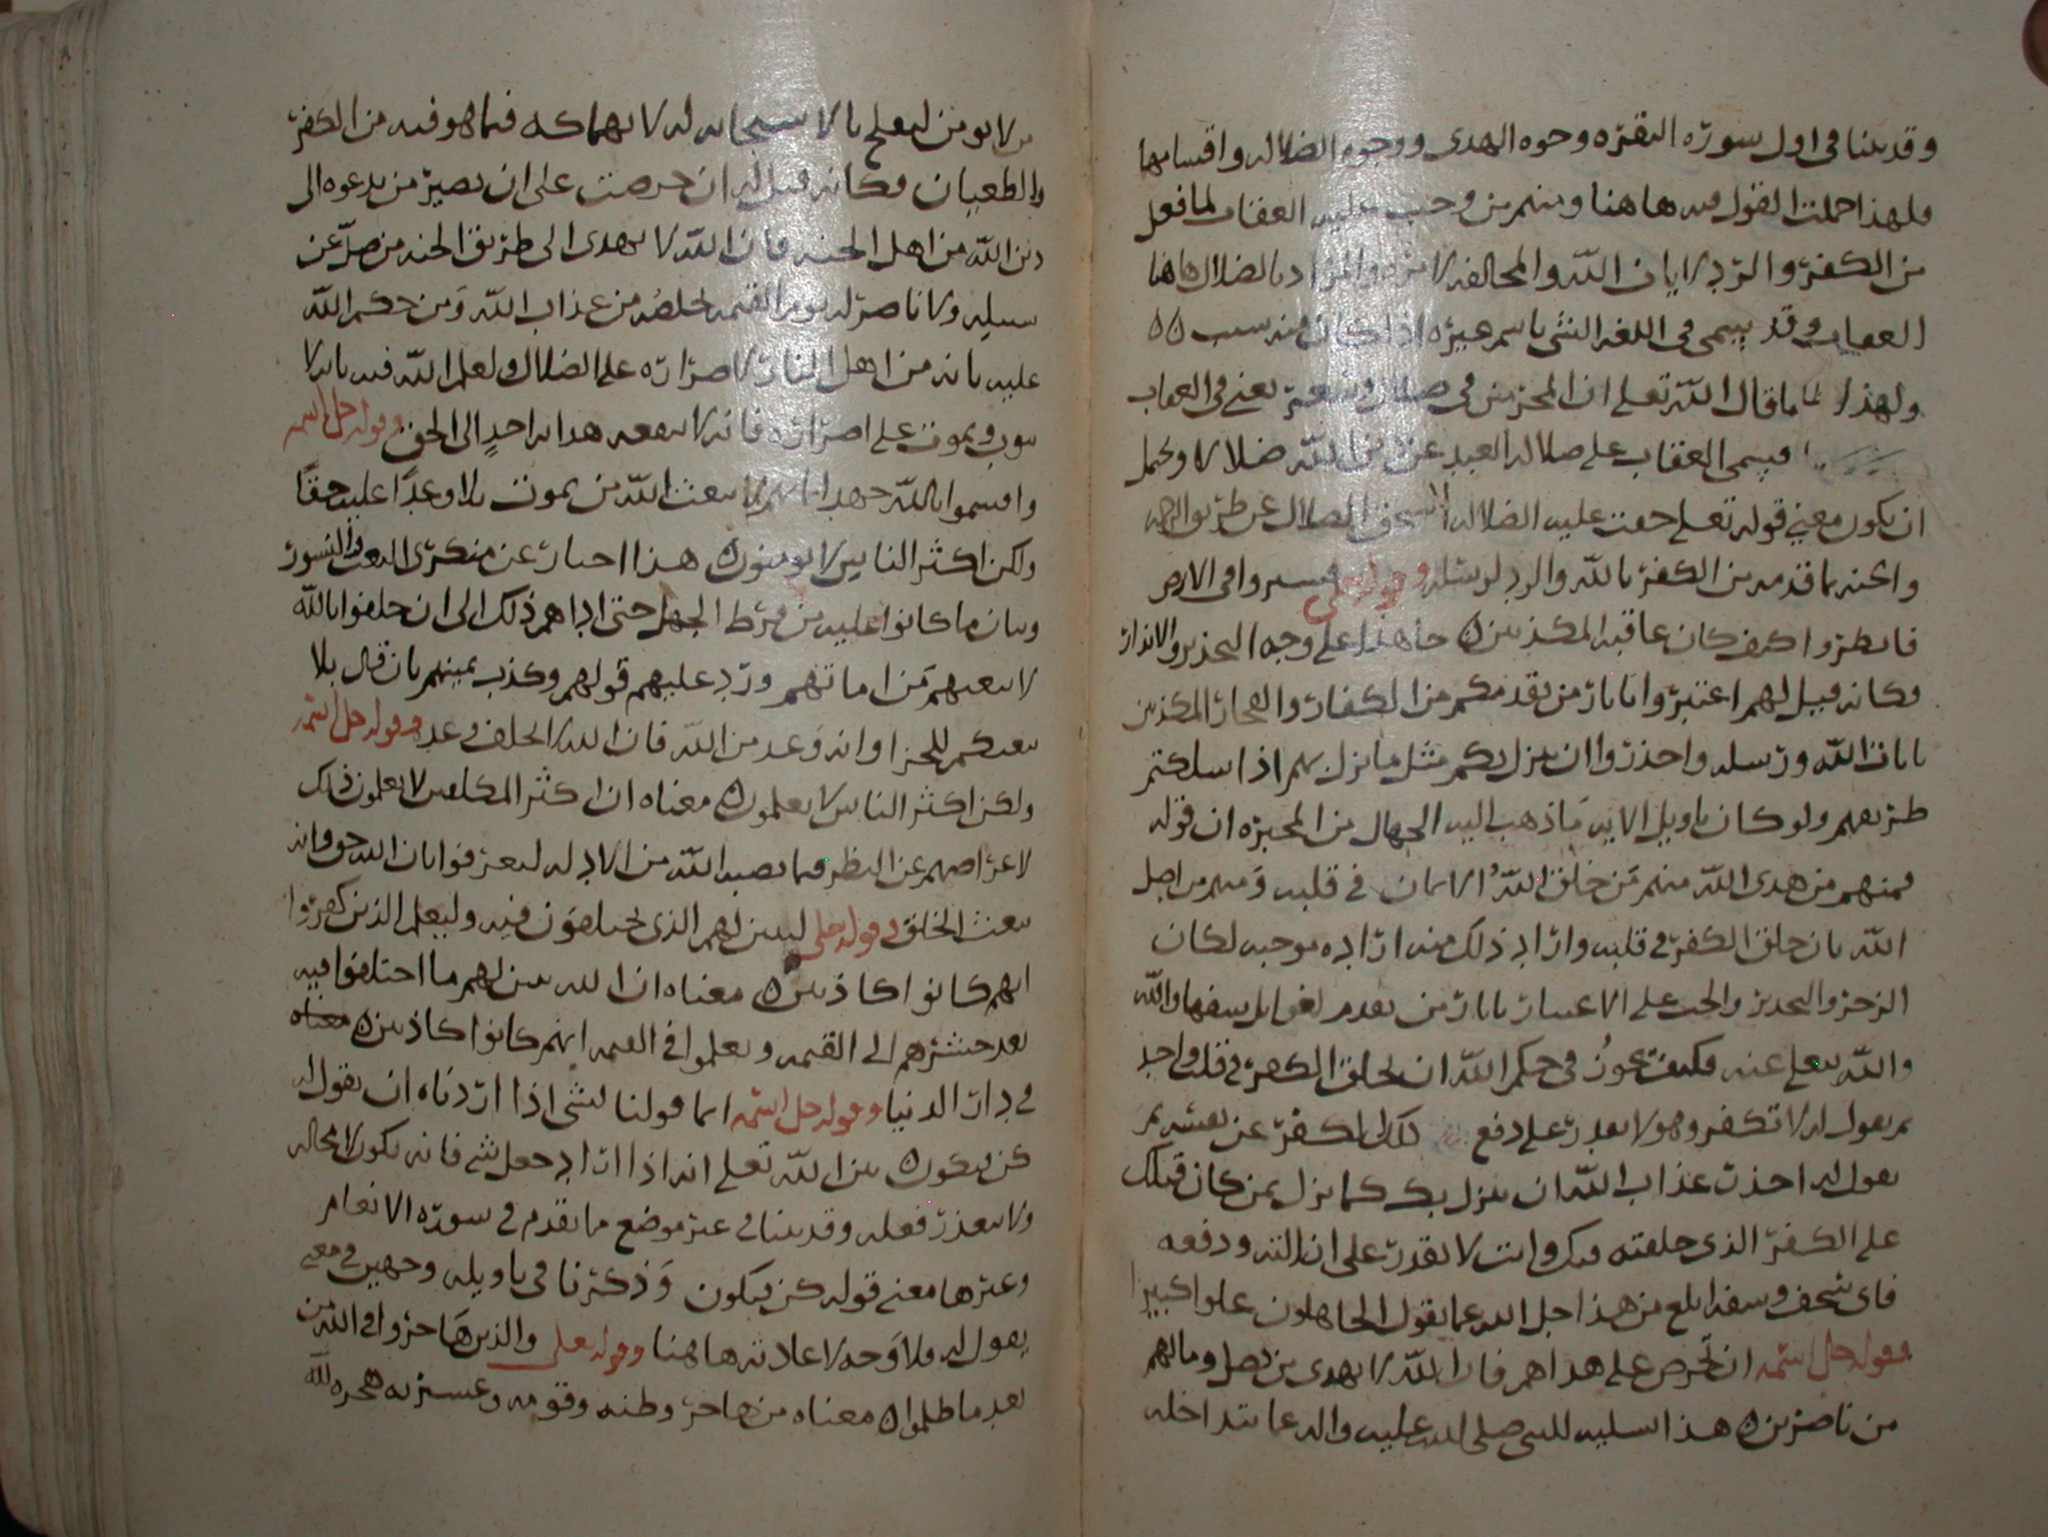 وقد بينا في اول سورة البقرة وجوه الهدى ووجوه الضلاله واقسامها
فلهذا اجملت القول فيه هاهنا ومنهم من وجب عليه العقاب لما فعل
من الكفر والرد لايات الله والمخالفه لامره والمراد بالضلال هاهنا
العقاب وقد يسمى في اللغه الشي باسم غيره اذا كان منه سبب
ولهذا قال الله تعلى ان المجرمين في ضلال وسعر يعني في العقاب
فيسمى العقاب على ضلاله العبد عن دين الله ضلالا ويحتمل
ان يكون معنى قوله تعلى حقت عليه الضلاله استحق الضلال عن طريق الرحمه
والجنه بما قدمه من الكفر بالله والرد لرسله وقوله تعلى فسيروا في الارض
فانظروا كيف كان عاقبه المكذبين هذا على وجه التحذير والانذار
فكانه قيل لهم اعتبروا باثار من تقدمكم من الكفار والفجار المكذبين
بايات الله ورسله واحذروا ان ينزل بكم مثل ما نزل بهم اذا سلكتم
طريقهم ولو كان تاويل الايه ما ذهب اليه الجهال من المجبره ان قوله
فمنهم من هدى الله منهم من خلق الله الايمان في قلبه ومنهم من اضل
الله بان خلق الكفر في قلبه واراد ذلك منه اراده موجبه لكان
الزجر والتحذير والحث على الاعتبار باثار من تقدم لغوا بل سفها والله
والله يتعلى عنه فكيف يجوز في حكم الله ان يخلق الكفر في قلب واحد
ثم يقول له لا تكفر وهو لا يقدر على دفع ذلك الكفر عن نفسه ثم
يقول له احذر عذاب الله ان ينزل بك كما نزل بمن كان قبلك
على الكفر الذي خلقته فيك وانت لا تقدر على ازالته ودفعه
فاي سخف وسفه ابلغ من هذا جل الله عما يقول الجاهلون علوا كبيرا
وقوله جل اسمه ان تحرص على هداهم فان الله لا يهدي من يضل وما لهم
من ناصرين هذا تسليه للنبي صلى الله عليه واله عما تداخله
لا يومن ليعلم بالا سبحانه له لانهماكه فيما هو فيه من الكفر
والطغيان فكانه قيل له ان حرصت على ان يصير من تدعوه الى
دين الله من اهل الجنه فان الله لا يهدي الى طريق الجنه من ضل عن
سبيله ولا ناصر له يوم القيمه يخلصه من عذاب الله ومن حكم الله
عليه بانه من اهل النار لاصراره على الضلال ولعلم الله فيه بانه لا
يتوب ويموت على اصراره فانه لا ينفعه هدايه احد الى الحق وقوله جل اسمه
واقسموا بالله جهد ايمانهم لا يبعث الله من يموت بلا وعدا عليه حقا
ولكن اكثر الناس لا يومنون هذا اخبار عن منكري البعث والنشور
وبيان ما كانوا عليه من فرط الجهل حتى اداهم ذلك الى ان حلفوا بالله
لا يبعثهم من اماتهم ورد عليهم قولهم وكذب يمينهم بان قال بلا
يبعثكم للجزا وانه وعد من الله فان الله لا يخلف وعده وقوله جل اسمه
ولكن اكثر الناس لا يعلمون معناه ان اكثر المكلفين لا يعلمون ذلك
لاعراضهم عن النظر فيما نصبه الله من الادله ليعرفوا بان الله حق وانه
يبعث الخلق وقوله تعلى ليبين لهم الذي يختلفون فيه وليعلم الذين كفروا
انهم كانوا كاذبين معناه ان الله يبين لهم ما اختلفوا فيه
بعد حشرهم الى القيمه ويعلموا في القيمه انهم كانوا كاذبين معناه
في دار الدنيا وقوله جل اسمه انما قولنا لشي اذا اردناه ان نقول له
كن فيكون بين الله تعلى انه اذا اراد فعل شي فانه يكون لا محاله
ولا يتعذر فعله وقد بينا في غير موضع ما تقدم في سورة الانعام
وغيرها معنى قوله كن فيكون وذكرنا في تاويله وجهين في معنى
يقول له فلا وجه لاعادته هاهنا وقوله تعلى والذين هاجروا في الله من
بعد ما ظلموا معناه من هاجر وطنه وقومه وعشيرته هجره لله